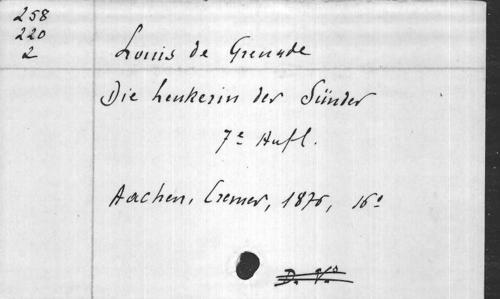 258
220
2
Louis de Grenade
Die Lenkerin der Sünder
7e Aufl.
Aachen, Cremer, 1876, 16°